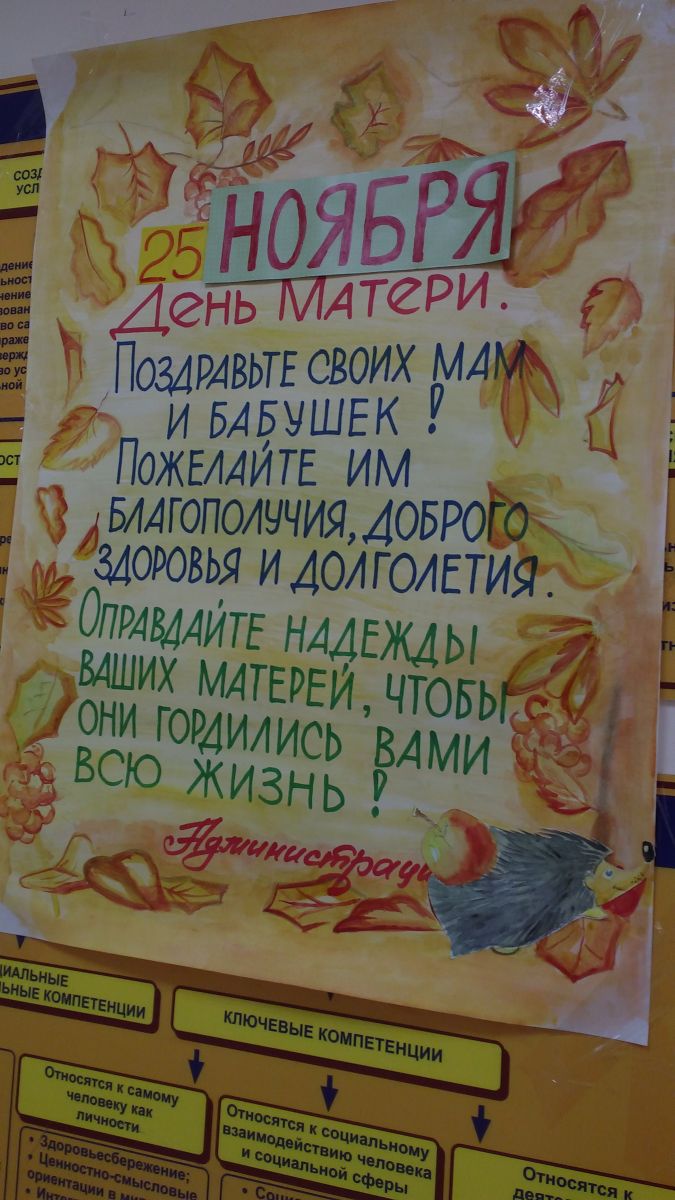 25 НОЯБРЯ
День Матери.
Поздравьте своих мам
и бабушек!
Пожелайте им
благополучия, доброго
здоровья и долголетия.
Оправдайте надежды
ваших матерей, чтобы
они гордились вами
всю жизнь!
Администраци
КОМПЕТЕНЦИИ
КЛЮЧЕВЫЕ КОМПЕТЕНЦИИ
Относятся к самому
человеку как
личности
• Здоровьесбережение;
• Ценностно-смысловые
ориентации в
Относятся к социальному
взаимодействию человека
и социальной сферы
Относятся к